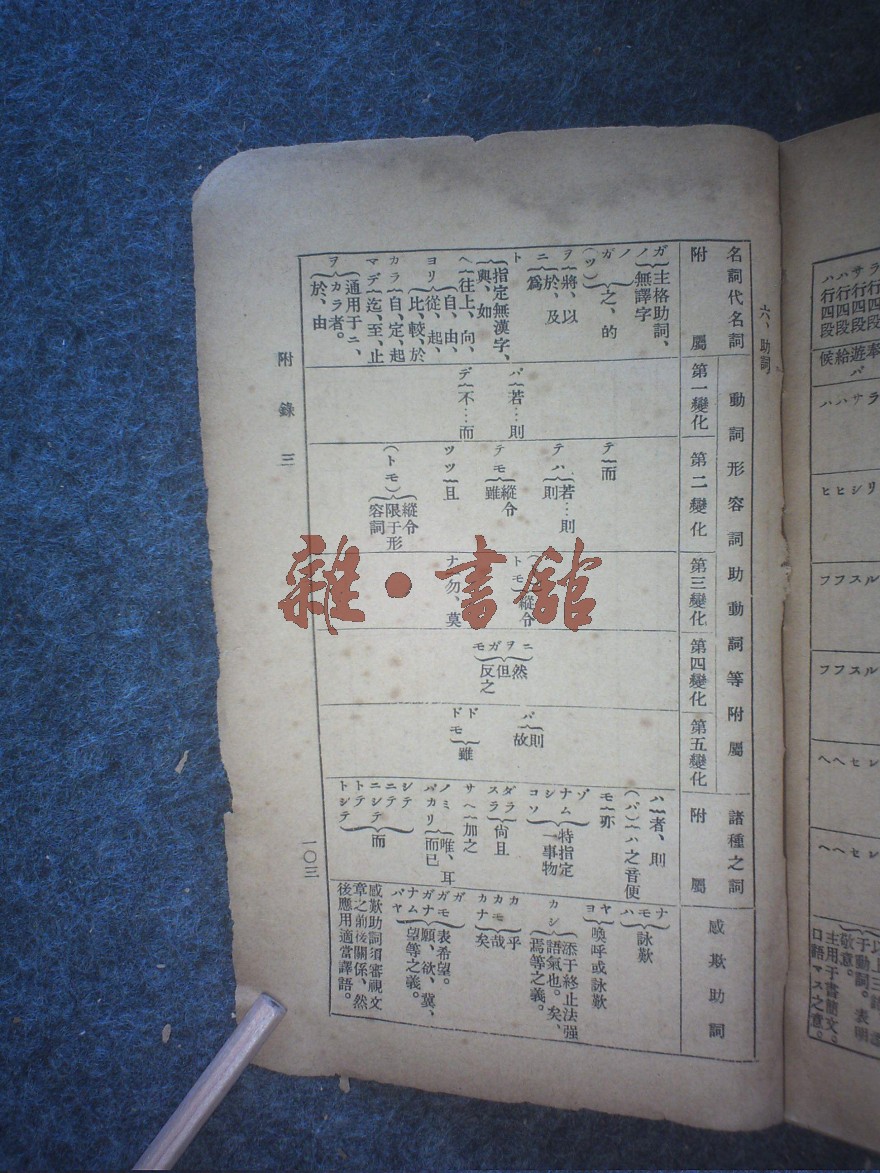 六、助詞
名詞代名詞
附屬
動詞形容詞助動詞等附屬
第一變化
第二變化
第三變化
第四變化
第五變化
諸種之詞
附屬
感歎助詞
ガ
ノ
主格助詞、
無譯字
ノ
ガ
(ツ)
之、的
ヲ
將、以
ニ
於、及
爲
ト
指定無漢字、
與、如
ヘ
往上、向、
ヨリ
自、由、
從、起、
比、較、於
カラ
自、定、起
マデ
迄、至、止
ヲ
通用于ニ、
カラ者。
於、由
バ
若…則
デ
不…而
テ
而
テハ
若…則
則
テモ
縱令
雖
ツツ
且
(トモ)
縱令
限于形
容詞
トモ
縱令
ナ
勿、莫
ニ
ヲ
ガ
モ
然
但
反之
バ
則
故
ド
ドモ
雖
ハ
者、則
(バ)
ハ之音便
モ
亦
ゾ
ナム
シ
コソ
特指定
一事物
ダラ
スラ
尙且
サヘ
加之
ノミ
バカリ
唯、耳
而已
シテ
ニテ
ニシテ
トテ
トシテ
而
ナ
モ
ハ
詠歎
ヤ
ヨ
喚呼或詠歎
カシ
添于終止法强
語氣也。矣、
焉等之義。
カ
カモ
カナ
乎
哉
矣
ガ
ガモ
ガナ
ナム
バヤ
表希望。
願、欲、冀、
望等之義。
感歎助詞須審視文
章之前後關係、然
後應用適當譯語。
附錄三
一〇三
雜·書館
ラ行四段
サ行四段
ハ行四段
ハ行四段
奉
遊バ
給
候
ラ
サ
ハ
ハ
リ
シ
ヒ
ヒ
ル
ス
フ
フ
ル
ス
フ
フ
レ
セ
ヘ
ヘ
レ
セ
ヘ
ヘ
于動詞。表明
敬意。
主用于書簡文。
口語マスの之意。